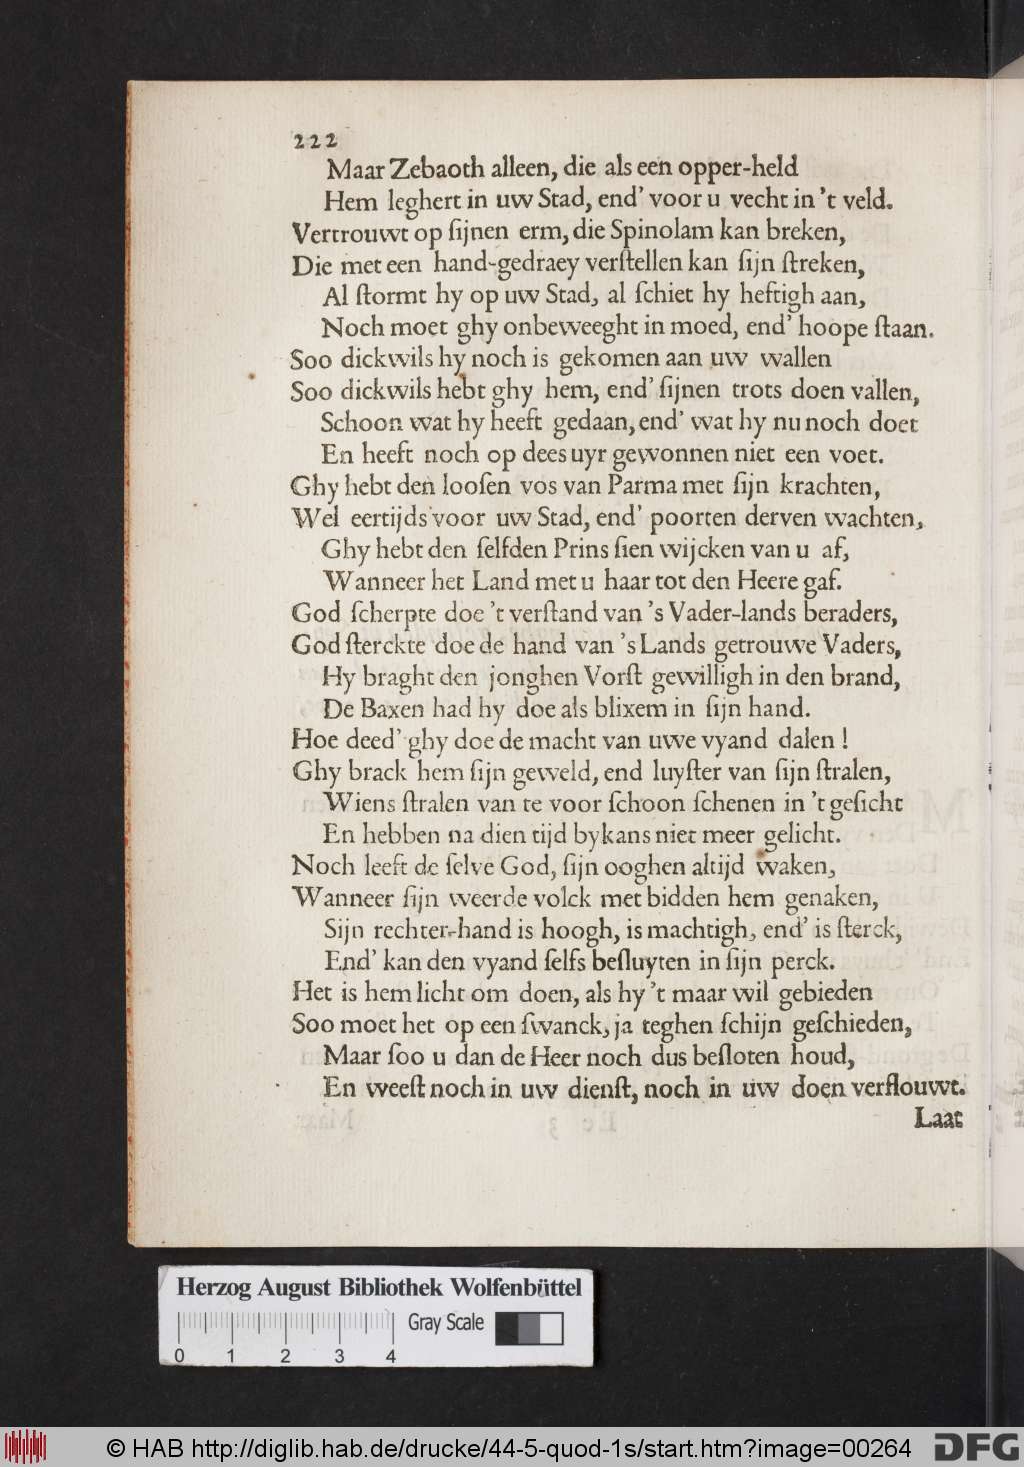 222
Maar Zebaoth alleen, die als een opper-held
Hem leghert in uw Stad, end' voor u vecht in 't veld.
Vertrouwt op ſijnen erm, die Spinolam kan breken,
Die met een hand-gedraey verſtellen kan ſijn ſtreken,
Al ſtormt hy op uw Stad, al ſchiet hy heftigh aan,
Noch moet ghy onbeweeght in moed, end' hoope ſtaan.
Soo dickwils hy noch is gekomen aan uw wallen
Soo dickwils hebt ghy hem, end' ſijnen trots doen vallen,
Schoon wat hy heeft gedaan, end' wat hy nu noch doet
En heeft noch op dees uyr gewonnen niet een voet.
Ghy hebt den looſen vos van Parma met ſijn krachten,
Wel eertijds voor uw Stad, end' poorten derven wachten,
Ghy hebt den ſelfden Prins ſien wijcken van u af,
Wanneer het Land met u haar tot den Heere gaf.
God ſcherpte doe 't verſtand van 's Vader-lands beraders,
God ſterckte doe de hand van 's Lands getrouwe Vaders,
Hy braght den jonghen Vorſt gewilligh in den brand,
De Baxen had hy doe als blixem in ſijn hand.
Hoe deed' ghy doe de macht van uwe vyand dalen !
Ghy brack hem ſijn geweld, end luyſter van ſijn ſtralen,
Wiens ſtralen van te voor ſchoon ſchenen in 't geſicht
En hebben na dien tijd bykans niet meer gelicht.
Noch leeft de ſelve God, ſijn ooghen altijd waken,
Wanneer ſijn weerde volck met bidden hem genaken,
Sijn rechter-hand is hoogh, is machtigh, end' is ſterck,
End' kan den vyand ſelfs beſluyten in ſijn perck.
Het is hem licht om doen, als hy 't maar wil gebieden
Soo moet het op een ſwanck, ja teghen ſchijn geſchieden,
Maar ſoo u dan de Heer noch dus beſloten houd,
En weeſt noch in uw dienſt, noch in uw doen verflouwt.
Laat
Herzog August Bibliothek Wolfenbüttel
Gray Scale
0 1 2 3 4
© HAB http://diglib.hab.de/drucke/44-5-quod-1s/start.htm?image=00264
DFG